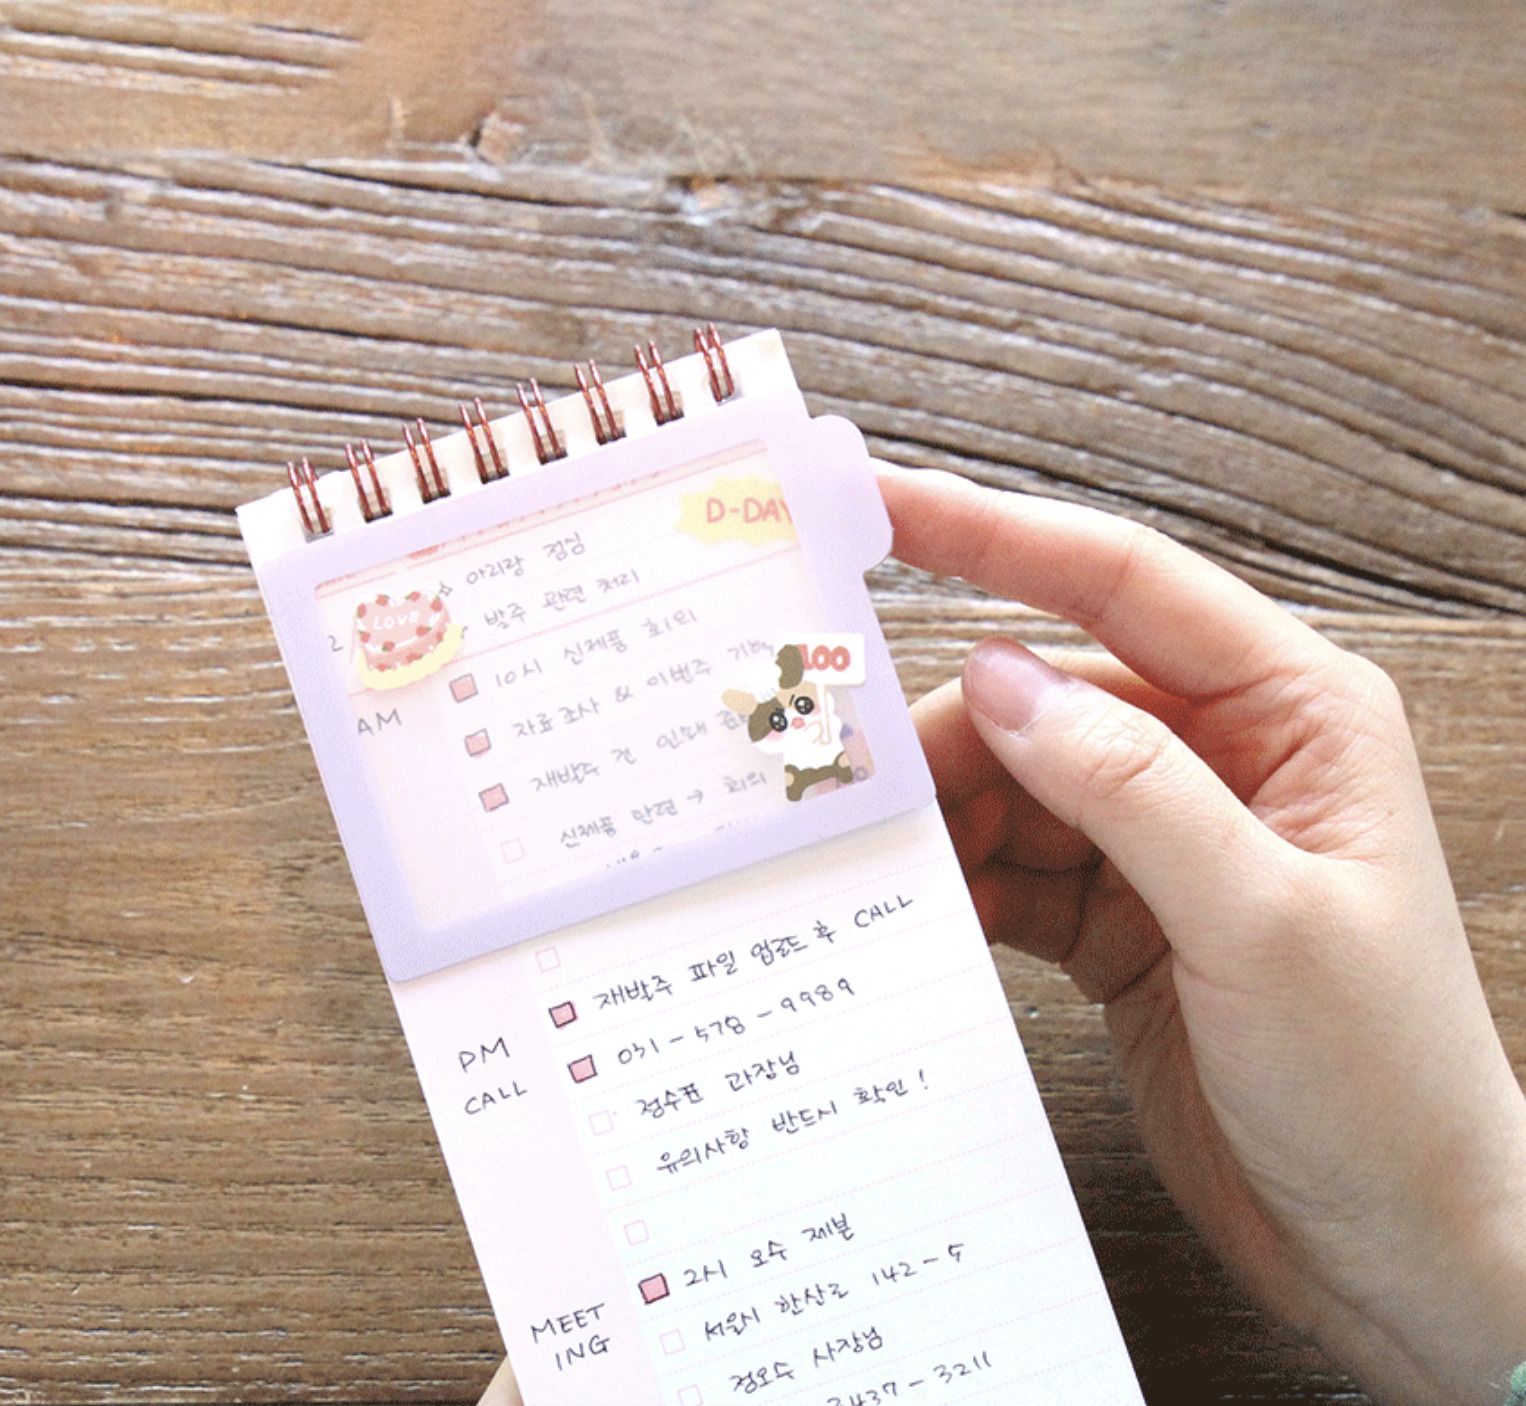 D-DAY
아리랑 점심
발주 관련 처리
2
LOVE
10시 신제품 회의
100
자료조사 & 이번주
AM
재발주 건 인쇄
신제품 관련 → 회의
재발주 파일 업로드 후 CALL
PM
031-578-9989
CALL
정수표 과장님
유의사항 반드시 확인!
2시 오수 제본
MEET
서울시 한산로 142-5
ING
정오수 사장님
3437-3211